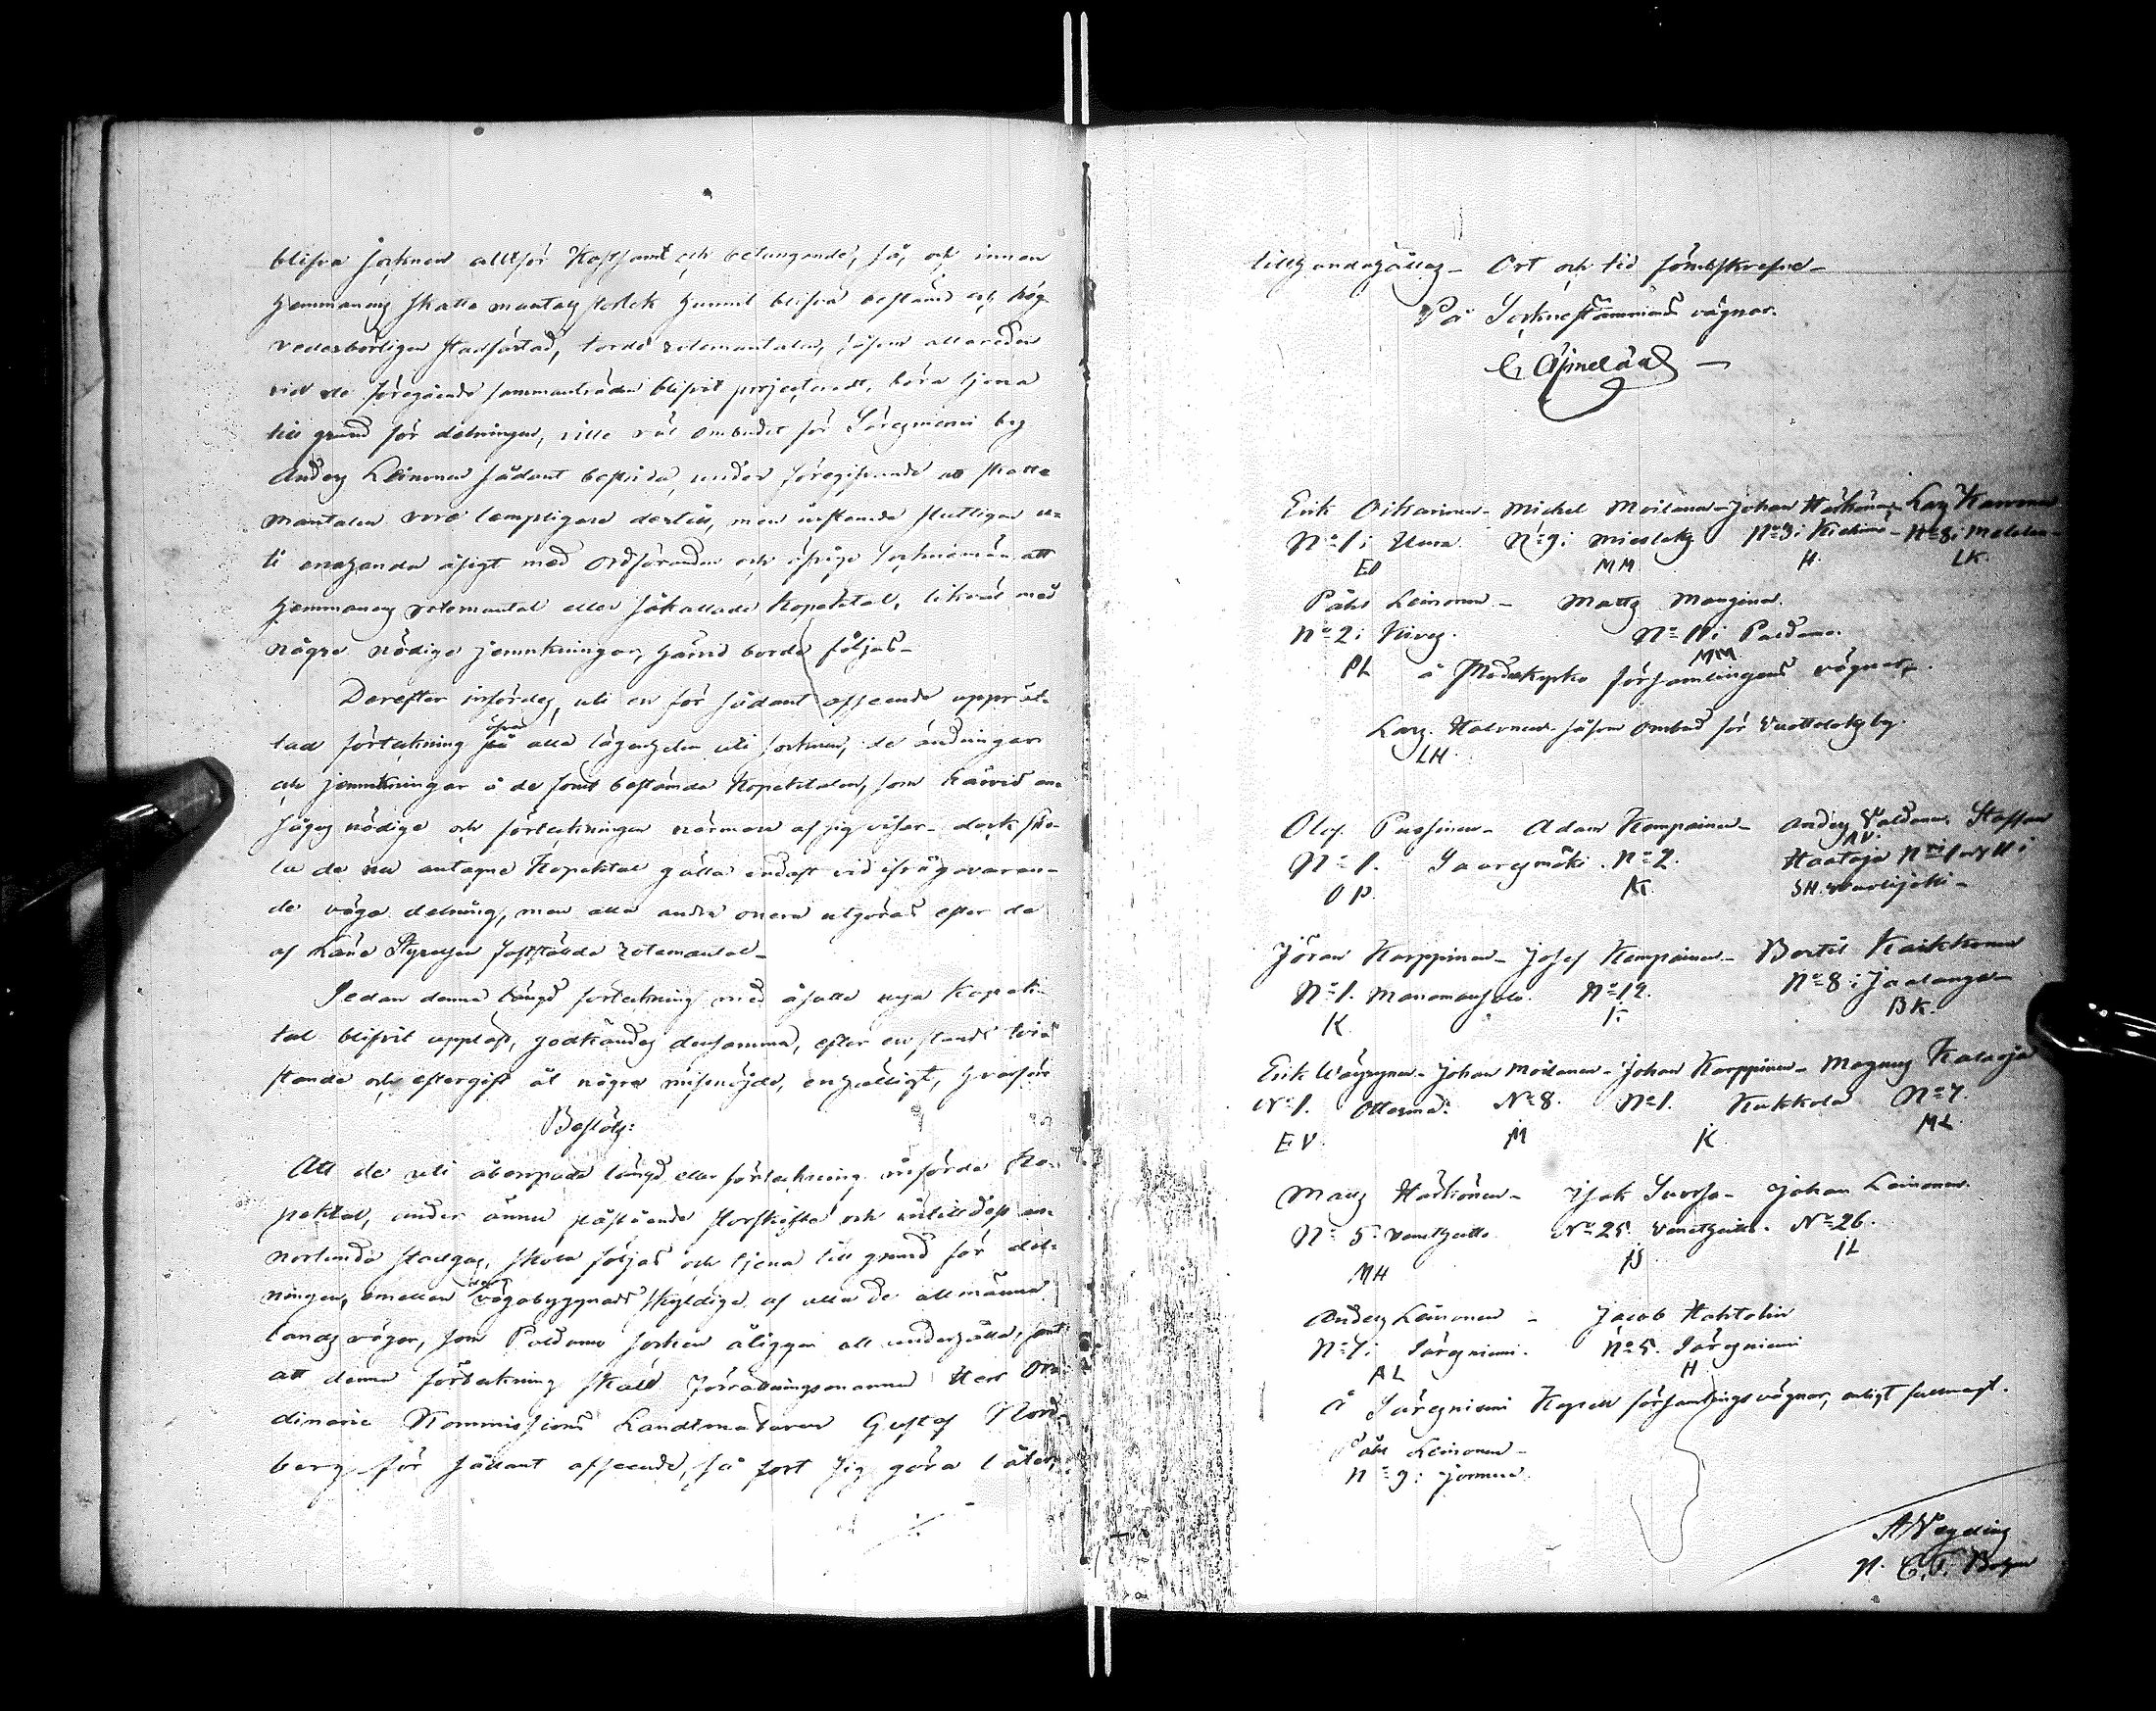 blifva socknen alltför kostsamt och betungande, så, och innan
hemmanens skatte mantals storlek hunnit blifva bestämd och hög
vederbörligen stadfästad, torde rotemantalen, såsom allaredan
vid de föregående sammanträden blifvit projecterade, böra tjena
till grund för delningen, ville väl ombudet för Säresniemi by
Anders Leinonen sådant bestrida, under föregifvande att skatte
mantalen vore lämpligare dertill, men instämde slutligen u-
ti enahanda åsigt med ordföranden och öfrige Sockenemän att
hemmanens rotemantal eller såkallade Kopektal, likväl med
några nödiga jemnkningar, härvid borde följas-
Derefter infördes, uti en för sådant afseende upprät-
tad förteckning öfver alla lägenheter uti socknen, de ändringar
och jemnkningar å de förut bestämda Kopektalen, som härvid an-
sågos nödiga och förteckningen närmare af sig visar- dock skol-
la de nu antagne Kopektal gälla endast vid ifrågavaran-
de väga delning, men alla andra onera utgöras efter de
af Läne Styrelsen fastställda rotemantal-
Sedan denna längd förteckning med åsatte nya Kopek-
tal blifvit uppläst, godkändes densamma, efter en stunds tvist
och eftergift åt några missnöjda, enhälligt, hvarföre
Beslöts:
Att de uti åberopade längd eller förteckning införda Ko-
pektal, under ännu påstående storskifte och intilldess an-
norlunda stadgas, skola följas och tjena till grund för del-
ningen, emellan vägabyggnads skyldige af alla de allmänna
landsvägar, som Paldamo socken åligger att underhålla, samt
att denna förteckning skall förrättningsmannen Herr Or-
dinarie Kommissions Landtmätaren Gustaf Nord-
berg för sådant afseende, så fort sig göra låter,
tillhandahållas- Ort och tid förutskrefne-
På Sockneståmmans vägnar.
C. Ajmelæus
Erik Oikarinen- Michel Moilanen- Johan Härkönen- Lars Karvonen
No 1 i Uura No 9 i Mieslaks No 3 i Kiehimä- No 8 i Melalax-
EO MM H. LK.
Påhl Leinonen- Matts Manginen.
No 2 i Kives. No 11 i Paldamo.
PL MM
å Moderkyrko församlingens vägnar.
Lars Halonen såsom ombud för Vuottolaks by.
LH.
Olof Pussinen- Adam Kempainen- Anders Valdanen Staffan
AV.
No 1. Saaresmäki. No 2. Haataja No 1 och 11 i
OP. AK SH. Vuolijoki-
Jöran Karppinen- Josef Kempainen- Bertil Kaikkonen
No 1. Manamansalo. No 12. No 8 i Jaalanga-
K. K BK.
Erik Wäyrynen- Johan Moilanen- Johan Karppinen- Magnus Kalaoja
No 1. Ottermä. No 8. No 1. Kukkola No 7.
EV. M K ML
Matts Härkönen- Isak Suorsa- Johan Leinonen
No 5. Venetheitto No 25. Venetheitto. No 26.
MH IS IL
Anders Leinonen - Jacob Hahtolin
No 7 i Säresniemi. No 5. Säresniemi
AL H.
å Säresniemi Kapell församlings vägnar, enligt fullmagt.
Påhl Leinonen-
No 9 i Jormua.